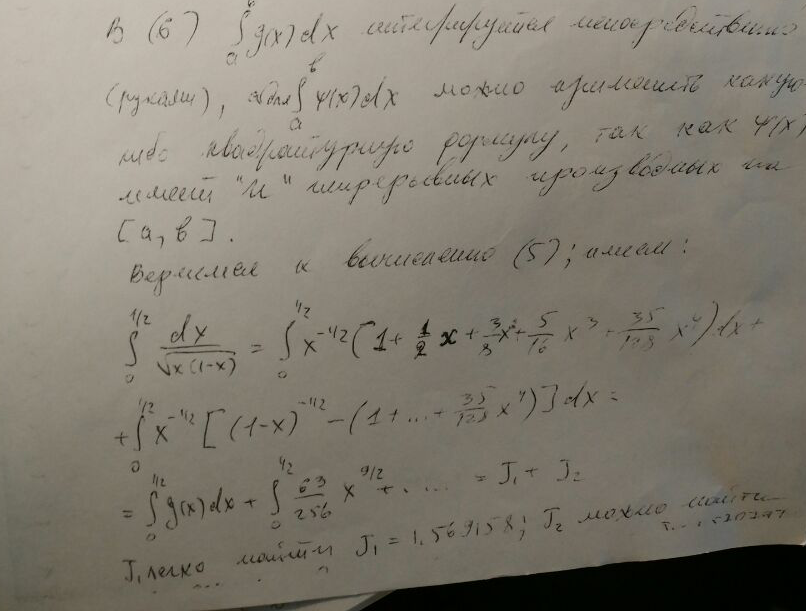 В (6) ∫_a^b g(x)dx интегрируется непосредственно
(руками), а для ∫_a^b ψ(x)dx можно применить какую-
либо квадратурную формулу, так как ψ(x)
имеет "n" непрерывных производных на
[a, b].
Вернемся к вычислению (5); имеем:
∫_0^{1/2} dx/√x(1-x) = ∫_0^{1/2} x^{-1/2} (1 + 1/2 x + 3/8 x² + 5/16 x³ + 35/128 x⁴) dx +
+ ∫_0^{1/2} x^{-1/2} [(1-x)^{-1/2} - (1 + ... + 35/128 x⁴)] dx =
= ∫_0^{1/2} g(x)dx + ∫_0^{1/2} 63/256 x^{9/2} + .... = J₁ + J₂
J₁ легко найти J₁ = 1,569158; J₂ можно найти